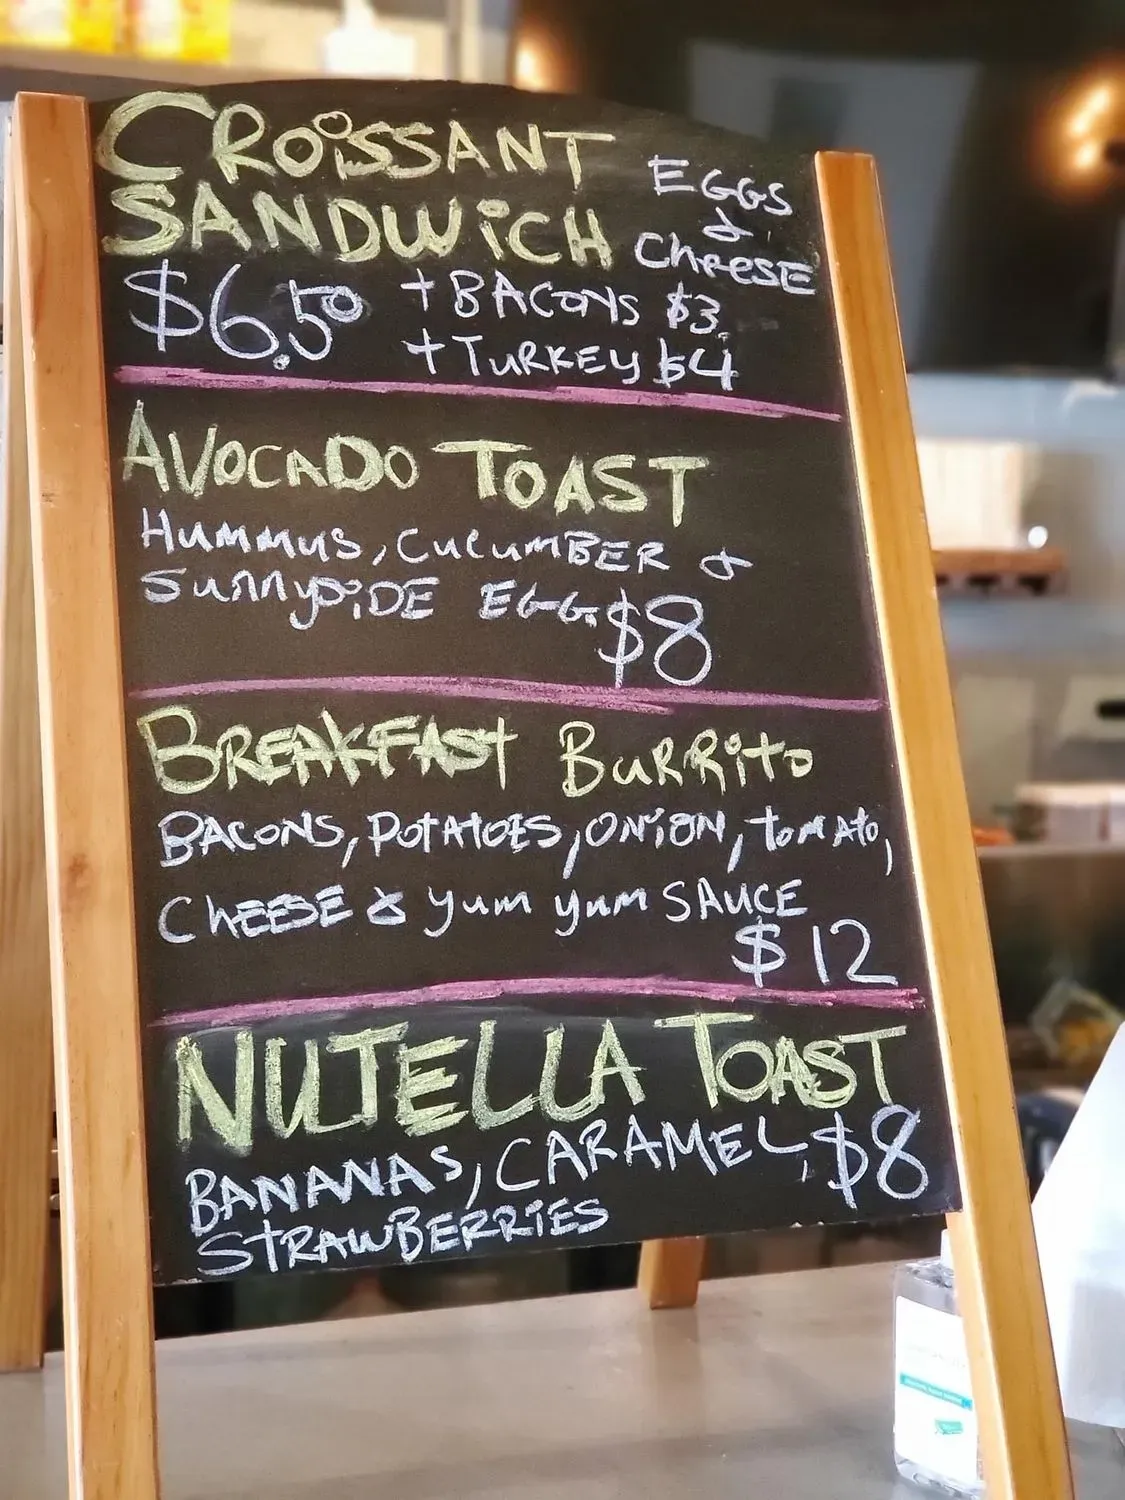 CROISSANT
SANDWICH
EGGS
&
CHEESE
$6.50
+ BACONS $3
+ TURKEY $4
AVOCADO TOAST
HUMMUS, CUCUMBER &
SUNNYSIDE EGG. $8
BREAKFAST BURRITO
BACONS, POTATOES, ONION, TOMATO,
CHEESE & yum yum SAUCE
$12
NUTELLA TOAST
BANANAS, CARAMEL, $8
STRAWBERRIES